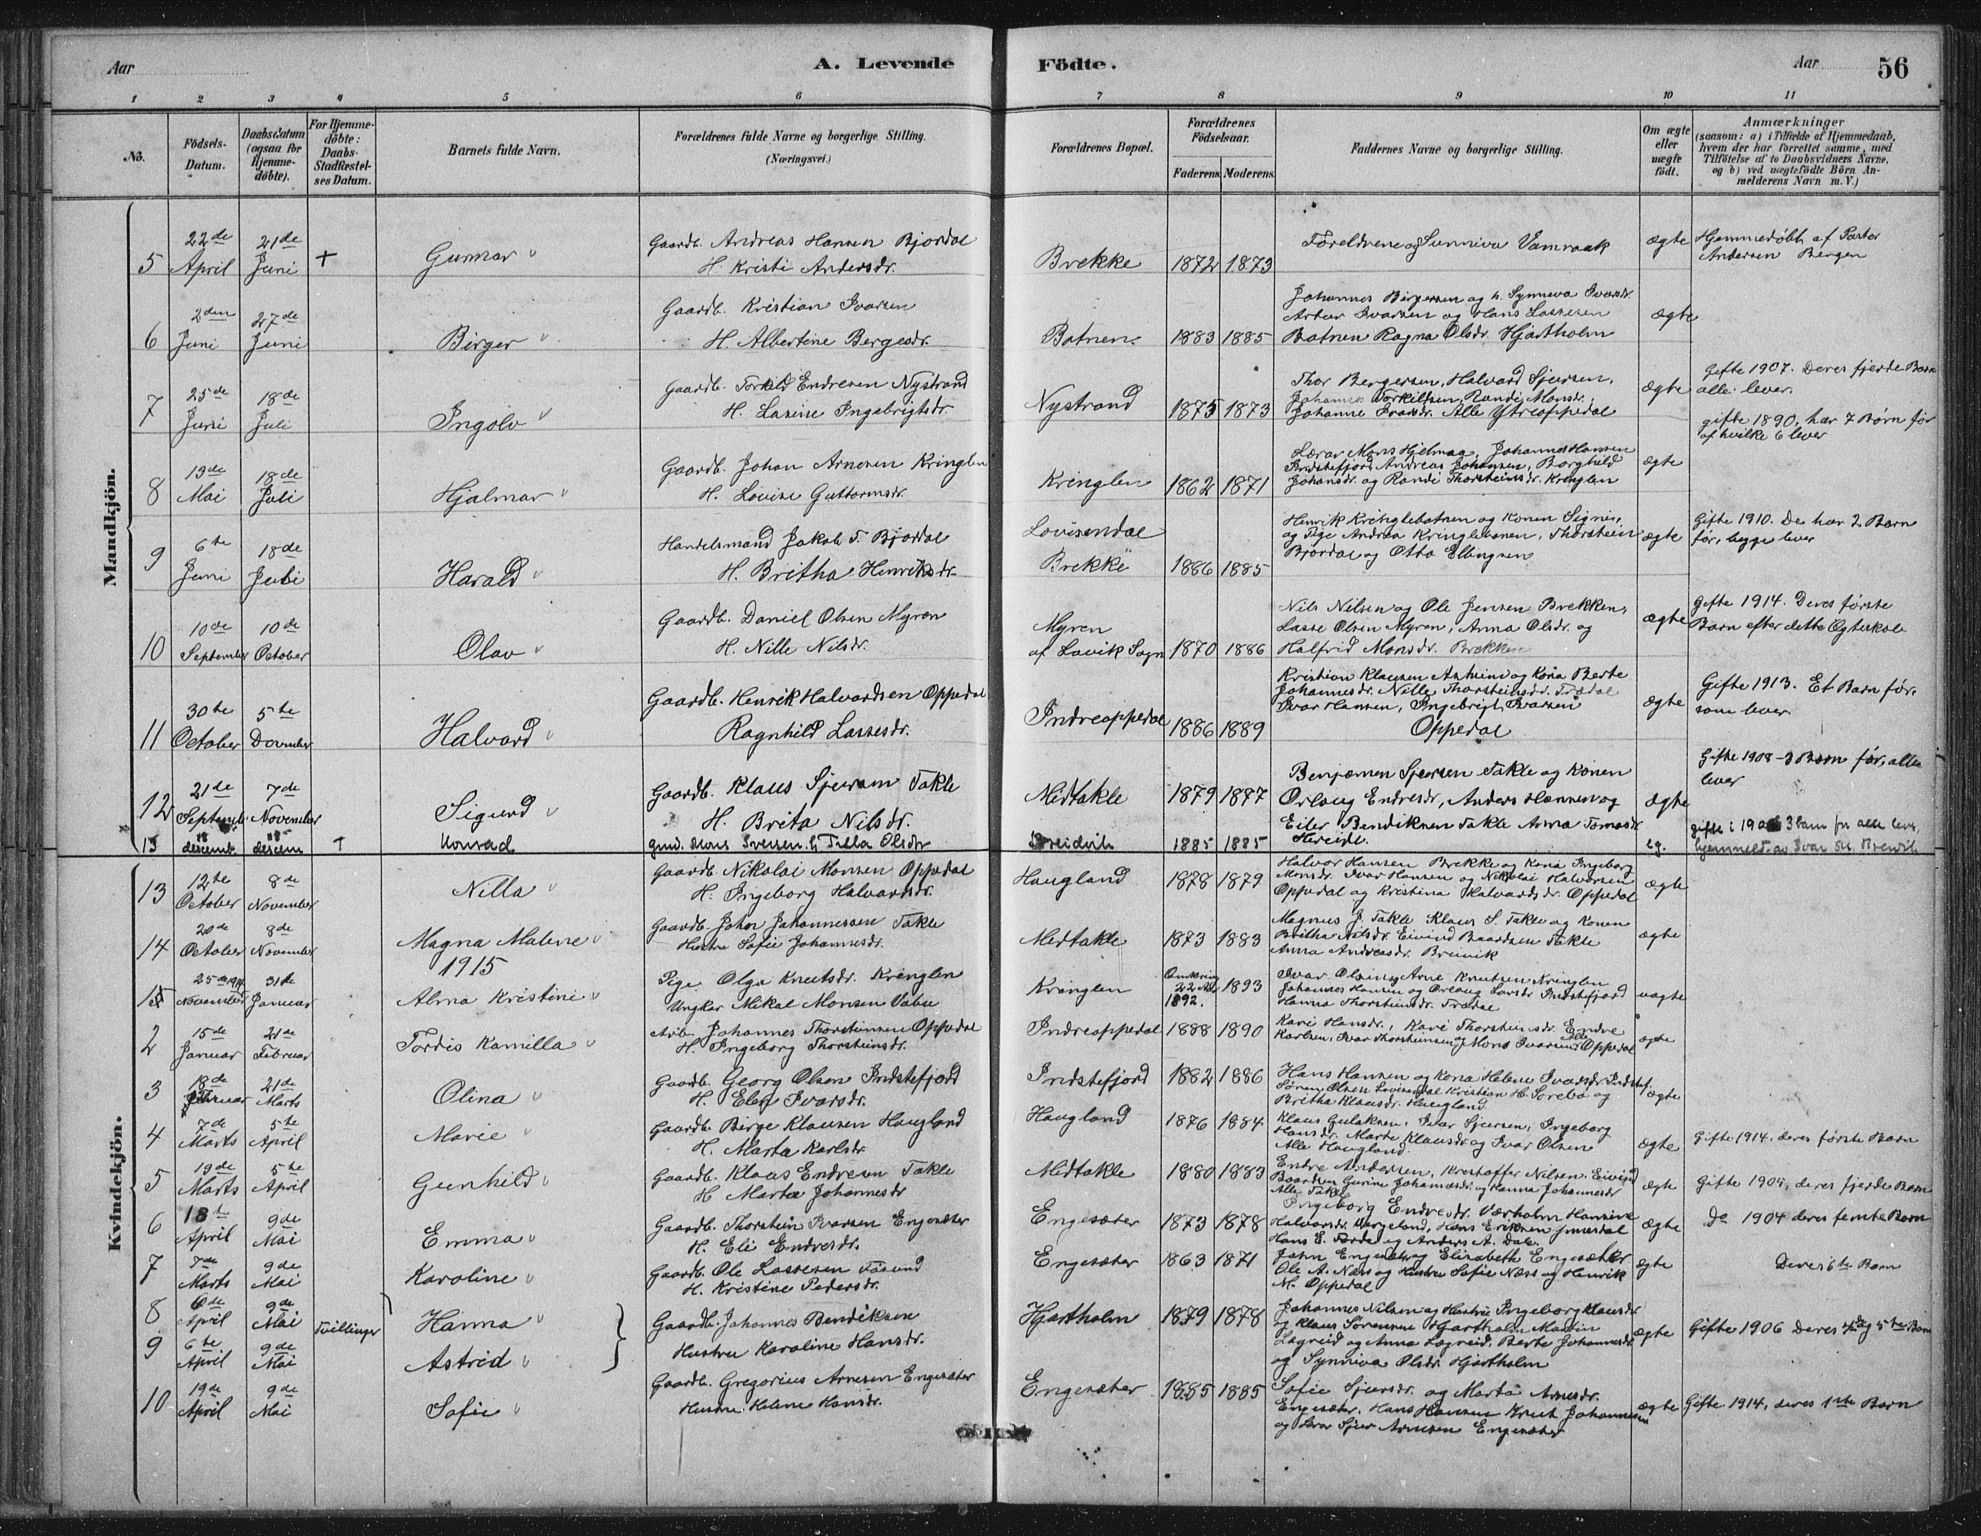 Aar
A. Levende
Födte.
Aar
56
1 2 3 4 5 6 7 8 9 10 11
No.
Födsels-Datum.
Daabsdatum (ogsaa for Hjemme-döbte).
For Hjemme-döbte: Daabs-Stadfæstel-ses Datum.
Barnets fulde Navn.
Forældrenes fulde Navne og borgerlige Stilling. (Næringsvei.)
Forældrenes Bopæl.
Forældrenes Födselsaar.
Faderens. Moderens.
Faddernes Navne og borgerlige Stilling.
Om ægte eller uægte födt.
Anmærkninger
(saasom: a) i Tilfælde af Hjemmedaab, hvem der har forrettet samme, med Tilföielse af to Daabsvidners Navne, og b) ved uægtefödte Börn Anmelderens Navn m. V.)
Mandkjön.
5 22de April 21de Juni + Gunnar Gaardb. Andreas Hansen Bjordal H. Kristi Andersdr. Brekke 1872 1873 Foreldrene og Sunniva Vamraak ægte Hjemmedøbt af Pastor Andersen Bergen
6 2den Juni 27de Juni Birger Gaardb. Kristian Ivarsen H. Albertine Bergesdr. Botnen 1883 1885 Johannes Birgersen og h. Synneva Ivarsdr. Artur Ivarsen og Hans Lassesen Botnen Ragna Olsdr. Hjartholm ægte
7 25de Juni 18de Juli Ingolv Gaardb. Torkild Endresen Nystrand H. Lasine Ingebrigtsdr. Nystrand 1875 1873 Thor Bergersen, Halvard Sjursen, Johannes Torkildsen, Randi Monsdr. Johanne Ivarsdr. Alle Ytreoppedal ægte Gifte 1907. Deres fjerde Barn alle lever.
8 19de Mai 18de Juli Hjalmar Gaardb. Johan Arnesen Kringlen H. Lovise Guttormsdr. Kringlen 1862 1871 Lærar Mons Hjelmaa, Johannes Hansen Indstefjord, Andreas Johansen, Borghild Johansdr. og Randi Thorsteinsdr. Kringlen ægte gifte 1890, har 7 Børn før af hvilke 6 lever
9 6te Juni 18de Juli Harald Handelsmand Jakob T. Bjordal H. Britha Henriksdr. Lovisendal Brekke 1886 1885 Henrik Kringlebotnen og Konen Signe, og Pige Andrea Kringlebotnen, Thorstein Bjordal og Otto Ellingsen ægte Gifte 1910. De har 2 Barn før, begge lever
10 10de September 10de October Olav Gaardb. Daniel Olsen Myren H. Nille Nilsdr. Myren af Lavik Sogn 1870 1886 Nils Nilsen og Ole Jensen Brekken, Lasse Olsen Myren, Anna Olsdr. og Halfrid Monsdr. Brekken ægte Gifte 1914. Deres første Barn efter dette Ægteskab
11 30te October 5te December Halvard Gaardb. Henrik Halvardsen Oppedal Ragnhild Lassesdr. Indreoppedal 1886 1889 Kristian Klausen og Kona Berte Johannesdr. Nille Thorsteinsdr. Trædal Ivar Hansen, Ingebrigt Ivarsen Oppedal ægte Gifte 1913. Et Barn før, som lever.
12 21de September 7de November Sigurd Gaardb. Klaus Sjursen Takle H. Brita Nilsdr. Midtakle 1879 1887 Benjamen Sjursen Takle og Konen Orlaug Endresdr, Anders Hannesen og Eiler Bendiksen Takle Anna Tomasdr. ægte Gifte 1908 - 3 Barn før, alle lever
13 18 desemb. 18 desem † Konrad gmd. Mons Iversen. h. Tilla Olsdr Breidvik 1885 1885 eg. gifte i 190 3 barn før alle leve, hjemmedt. av Ivar Brewik
Kvindekjön.
13 12te October 8de November Nilla Gaardb. Nikolai Monsen Oppedal H. Ingeborg Halvardsdr. Haugland 1878 1879 Halvor Hansen Brekke og Kona Ingeborg Monsdr. Ivar Hansen og Nikolai Halvorsen Oppedal og Kristina Halvardsdr. Oppedal ægte
14 20de October 8de November Magna Malene Gaardb. Johan Johannessen Takle Hustru Sofie Johannesdr. Midtakle 1873 1883 Magnus J. Takle Klaus S. Takle og Konen Britha Nilsdr. Eivind Baardsen Takle Anna Andreasdr. Breivik ægte
1915
25de 1914 November 31de Januar Alma Kristine Pige Olga Knutsdr. Kringlen Ungkar Mikal Monsen Vabu Kringlen Omkring 22 1892. 1893 Ivar Olsen, Arne Knutsen Kringlen Johannes Hansen og Orlaug Larsdr. Indstefjord Hanna Thorsteinsdr. Trædal uægte
2 15de Januar 21de Februar Tordis Kamilla Arb. Johannes Thorsteinsen Oppedal H. Ingeborg Thorsteinsdr. Indreoppedal 1888 1890 Kari Hansdr., Kari Thorsteinsdr. Endre Karlsen, Ivar Thorsteinsen og Mons Ivarsen Alle Oppedal ægte
3 18de Februar 21de Marts Olina Gaardb. Georg Olsen Indstefjord H. Elen Ivarsdr. Indstefjord 1882 1886 Hans Hansen og Kona Helene Ivarsdr. Indstef. Søren Olsen Lovisendal Kristian H. Sørebø og Britha Klausdr. Haugland ægte
4 7de Marts 5te April Marie Gaardb. Birge Klausen Haugland H. Marta Karlsdr. Haugland 1876 1884 Klaus Gulaksen, Peder Sjursen, Ingeborg Hansdr. Marta Klausdr. og Ivar Olsen Alle Haugland. ægte Gifte 1914. deres første Barn
5 19de Marts 5te April Gunhild Gaardb. Klaus Endresen Takle H. Marta Johannesdr Midtakle 1880 1883 Endre Andersen, Kristoffer Nilsen, Eivind Baardsen Gurine Johannesdr. og Hanna Johannesdr Alle Takle ægte Gifte 1905, deres fjerde Barn
6 18te April 9de Mai Emma Gaardb. Thorstein Ivarsen Engesæter H. Eli Endresdr. Engesæter 1873 1878 Ingeborg Endresdr. Værholm Hansine Halvorsdr. Vergeland, Hans Eriksen Hans E. Førde og Anders A. Dale ægte Do 1904 deres femte Barn
7 7de Marts 9de Mai Karoline Gaardb. Ole Lassesen Tosund H. Kristine Pedersdr. Engesæter 1863 1871 John Engesæter og Elizabeth Engesæter Ole A. Næss og Hustru Sofie Næss og Henrik M. Oppedal ægte Deres 6te Barn
8 6de April 9de Mai Tvillinger Hanna Gaardb. Johannes Bendiksen Hustru Karoline Hansdr. Hjartholm 1879 1878 Johannes Nilsen og Hustru Ingeborg Klausdr og Klaus Sørensen Hjartholm Martin Lægreid og Anna Lægreid. Berte Johannesdr. og Synniva Olsdr. Hjartholm ægte Gifte 1906 Deres 4de og 5te Barn
9 6te April 9de Mai Astrid
10 19de April 9de Mai Sofie Gaardb. Gregorius Arnesen Engesæter Hustru Helene Hansdr. Engesæter 1885 1885 Sofie Sjursdr. og Marta Arnesdr. Engesæter. Hans Hansen Knut Johannesen og Lars Sjur Arnesen Engesæter ægte Gifte 1914, deres 1ste Barn